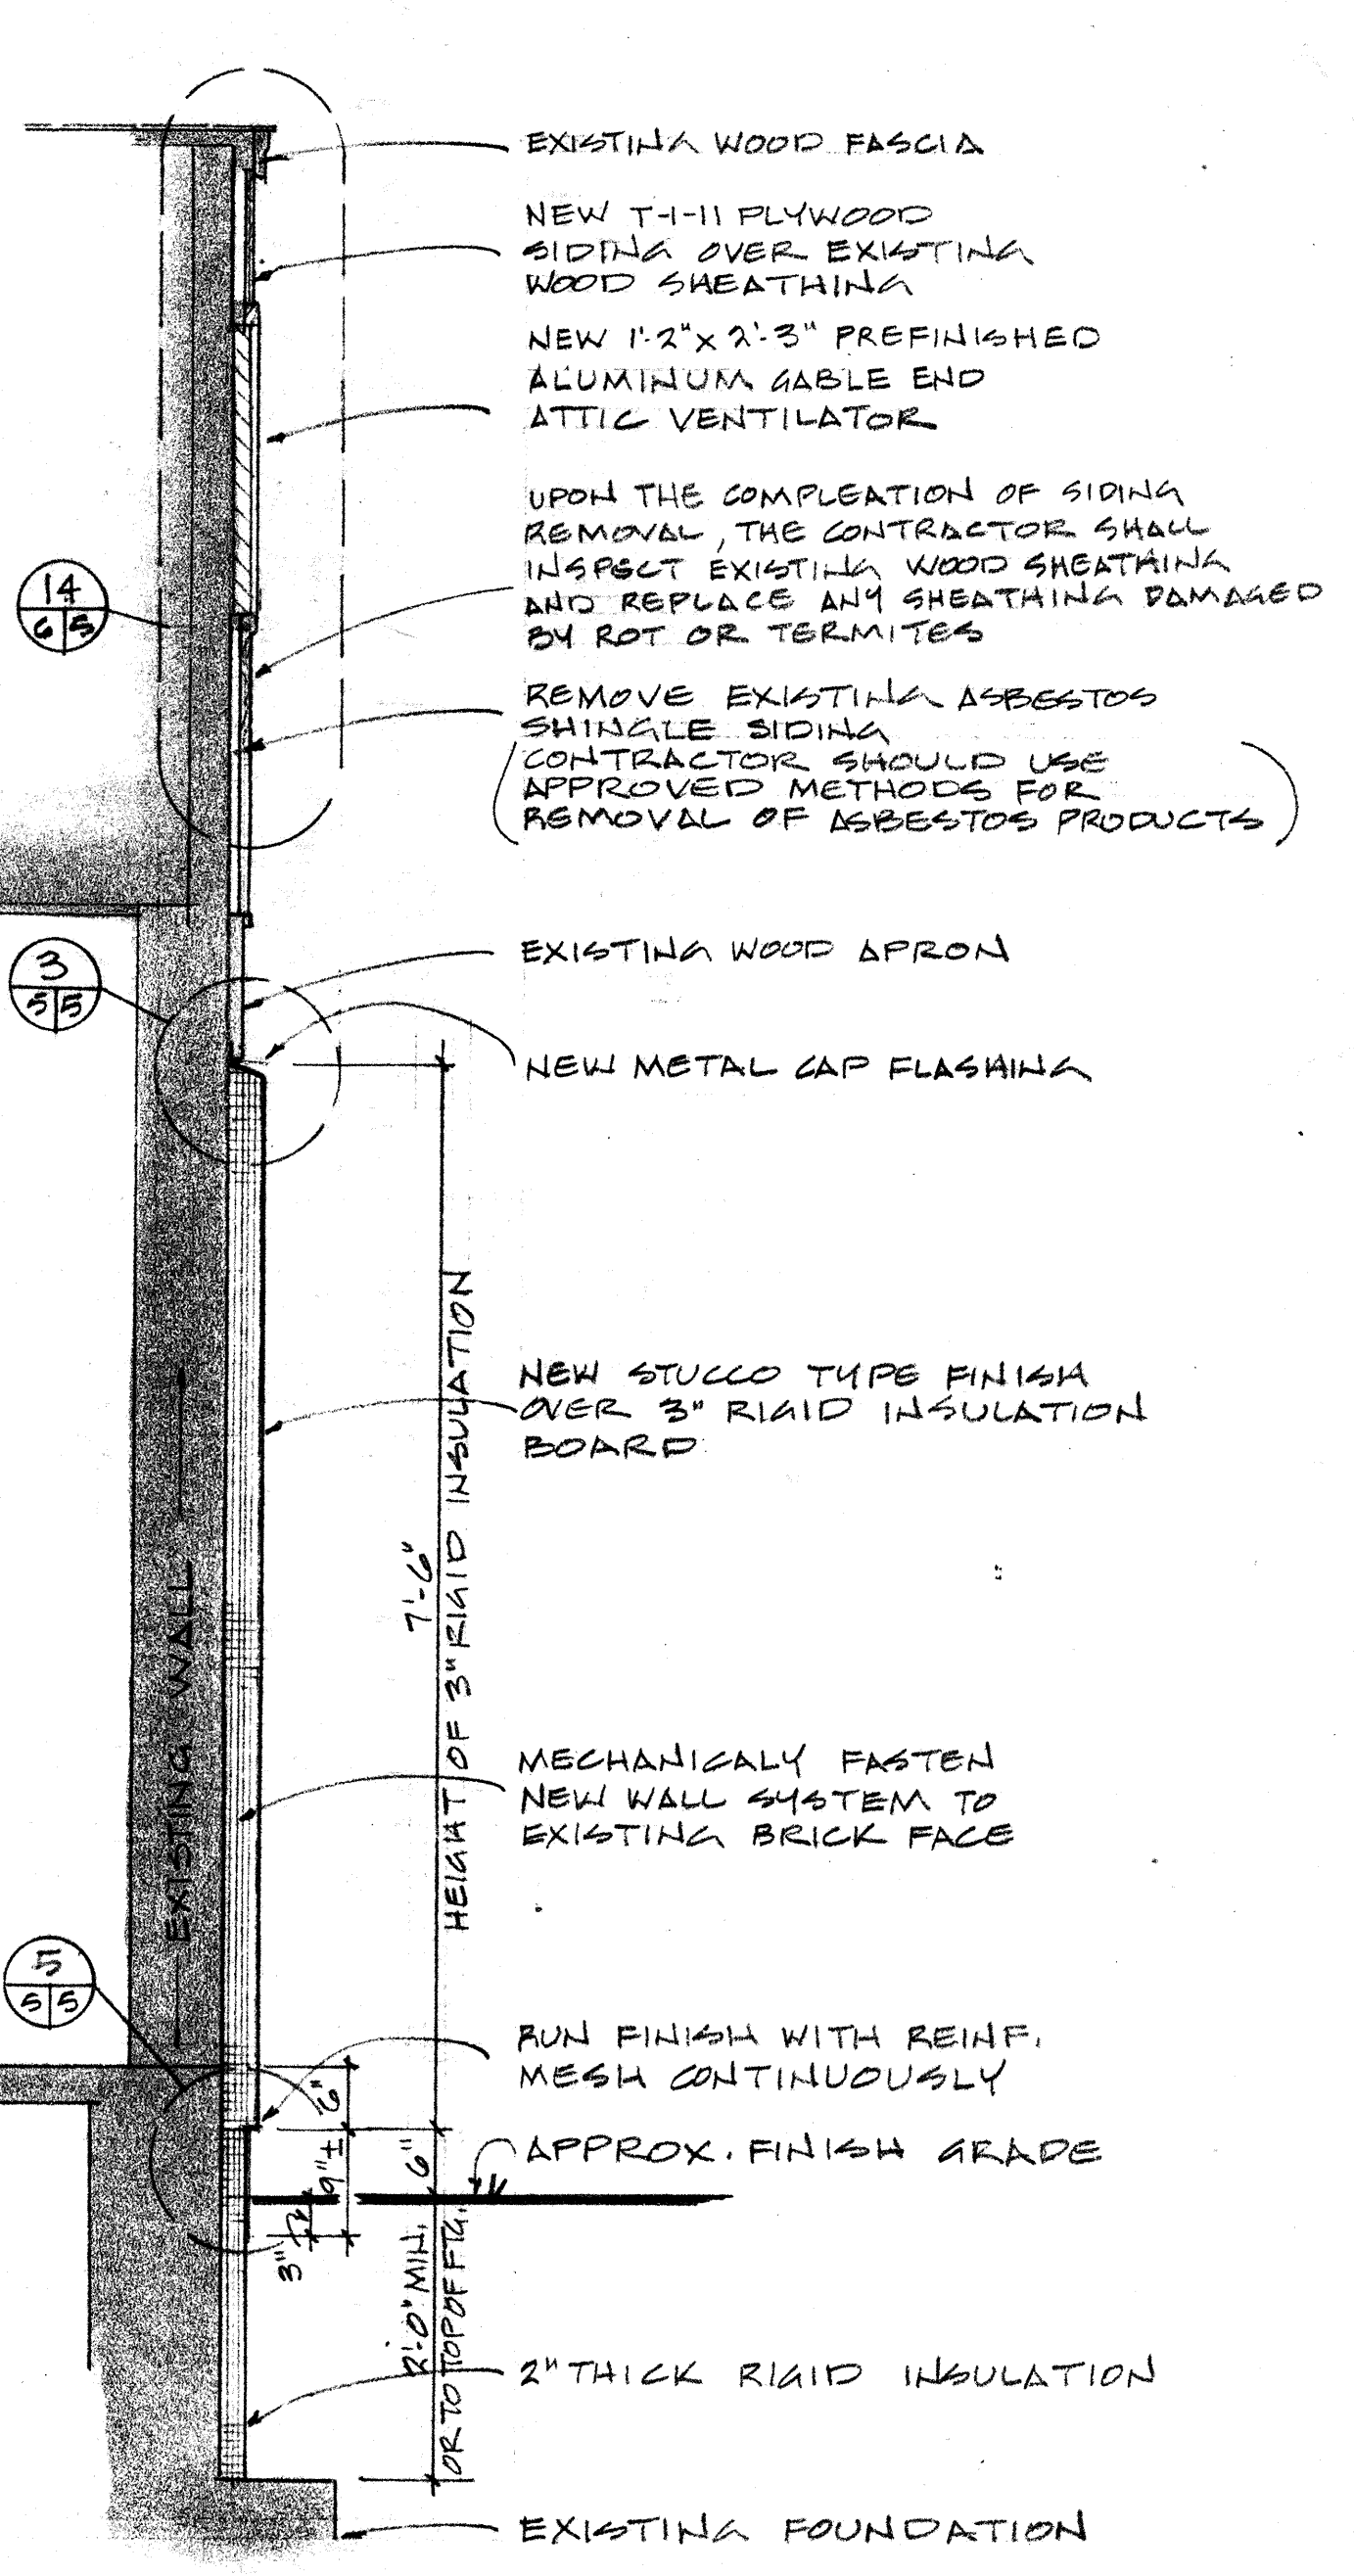 EXISTING WOOD FASCIA
NEW T-1-11 PLYWOOD
SIDING OVER EXISTING
WOOD SHEATHING
NEW 1'-2" x 2'-3" PREFINISHED
ALUMINUM GABLE END
ATTIC VENTILATOR
UPON THE COMPLEATION OF SIDING
REMOVAL, THE CONTRACTOR SHALL
INSPECT EXISTING WOOD SHEATHING
AND REPLACE ANY SHEATHING DAMAGED
BY ROT OR TERMITES
14
6 5
REMOVE EXISTING ASBESTOS
SHINGLE SIDING
(CONTRACTOR SHOULD USE
APPROVED METHODS FOR
REMOVAL OF ASBESTOS PRODUCTS)
EXISTING WOOD APRON
3
5 5
NEW METAL CAP FLASHING
NEW STUCCO TYPE FINISH
OVER 3" RIGID INSULATION
BOARD
7'-6"
HEIGHT OF 3" RIGID INSULATION
EXISTING WALL
MECHANICALY FASTEN
NEW WALL SYSTEM TO
EXISTING BRICK FACE
5
5 5
RUN FINISH WITH REINF.
MESH CONTINUOUSLY
6"
9"±
6"
APPROX. FINISH GRADE
3"
2'-0" MIN.
OR TO TOP OF FTG.
2" THICK RIGID INSULATION
EXISTING FOUNDATION